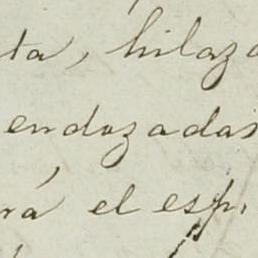 ta, hilaza
endozadas
rá el esp.